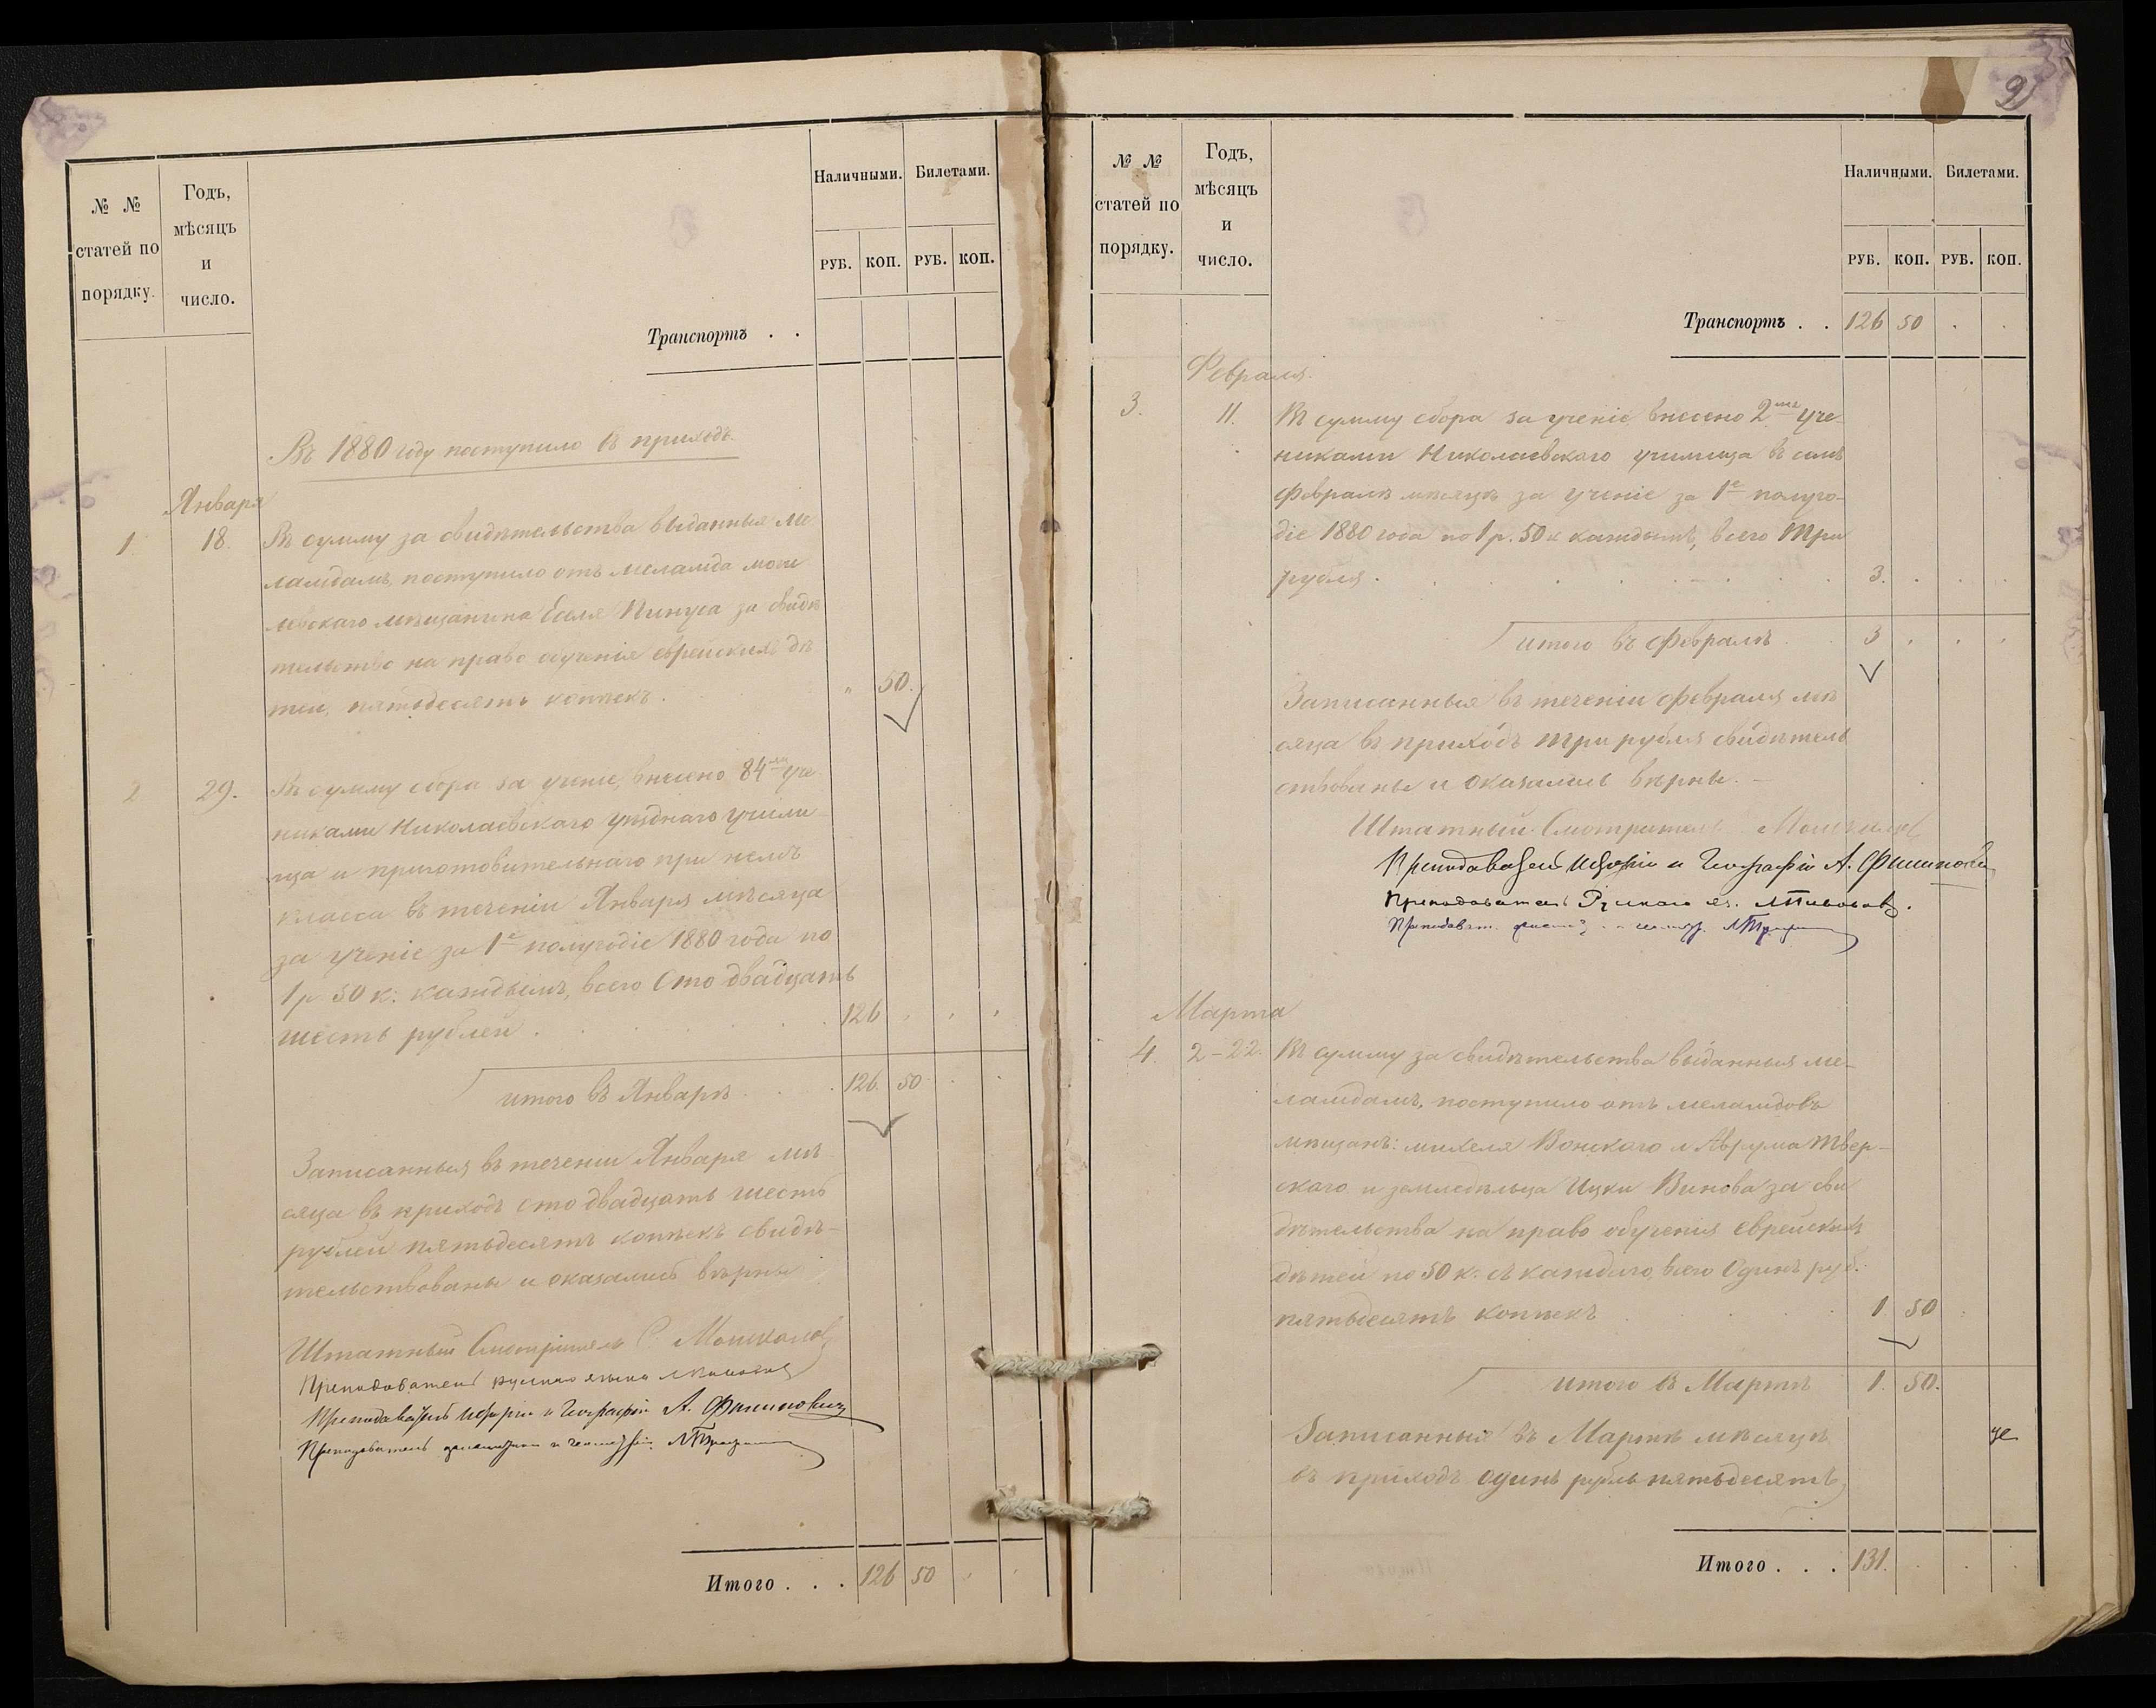 № № статей по порядку.
Годъ, мѣсяцъ и число.
Наличными. Билетами.
РУБ. КОП. РУБ. КОП.
Транспортъ . .
Въ 1880 году поступило въ приходъ.
Января
1 18. Въ сумму за свидѣтельства выданныя ме
ламдамъ, поступило отъ меламда моги
левскаго мѣщанина Еселя Пинуса за свидѣ
тельство на право обученія еврейскихъ дѣ
тей, пятьдесятъ копѣекъ. " 50.
2 29. Въ сумму сбора за ученіе, внесено 84ми уче
никами Николаевскаго уѣзднаго училищ
ща и приготовительнаго при немъ
класса въ теченіи Января мѣсяца
за ученіе за 1е полугодіе 1880 года по
1 р 50 к. каждымъ, всего Сто двадцать
шесть рублей . 126 . . .
итого въ Январѣ . . . 126. 50 . .
Записанныя въ теченіи Января мѣ
сяца въ приходъ сто двадцать шесть
рублей пятьдесятъ копѣекъ свидѣ-
тельствованы и оказались вѣрны
Штатный Смотритель Мошкалов
Преподаватель русскаго языка
Преподаватель Исторіи и Географіи А. Филиповичъ
Преподаватель
Итого . . . 126 50
9
№ № статей по порядку.
Годъ, мѣсяцъ и число.
Наличными. Билетами.
РУБ. КОП. РУБ. КОП.
Транспортъ . . 126 50 . .
Февраля.
3. 11. Въ сумму сбора за ученіе внесено 2мя уче-
никами Николаевскаго училища въ семъ
Февралѣ мѣсяцѣ за ученіе за 1е полуго-
діе 1880 года по 1 р. 50 к каждымъ, всего Три
рубля . 3. . . .
итого въ Февралѣ . 3 . . .
Записанныя въ теченіи Февраля мѣ
сяца въ приходъ три рубля свидѣтель
ствованы и оказались вѣрны. –
Штатный Смотритель Мошкалов
Преподаватель Исторіи и Географіи А. Филиповичъ
Преподаватель Русскаго яз.
Преподават.
Марта
4. 2–22. Въ сумму за свидѣтельства выданныя ме-
ламдамъ, поступило отъ меламдовъ
мѣщанъ: Михеля Вонскаго и Аврума Твер-
скаго и земледѣльца Ицки Винова за сви
дѣтельства на право обученія Еврейскихъ
дѣтей по 50 к. съ каждаго, всего Одинъ руб.
пятьдесятъ копѣекъ . 1. 50 .
итого въ Мартѣ 1. 50.
Записанныя въ Мартѣ мѣсяцѣ
въ приходъ одинъ рубль пятьдесятъ
Итого . . . 131. . . .